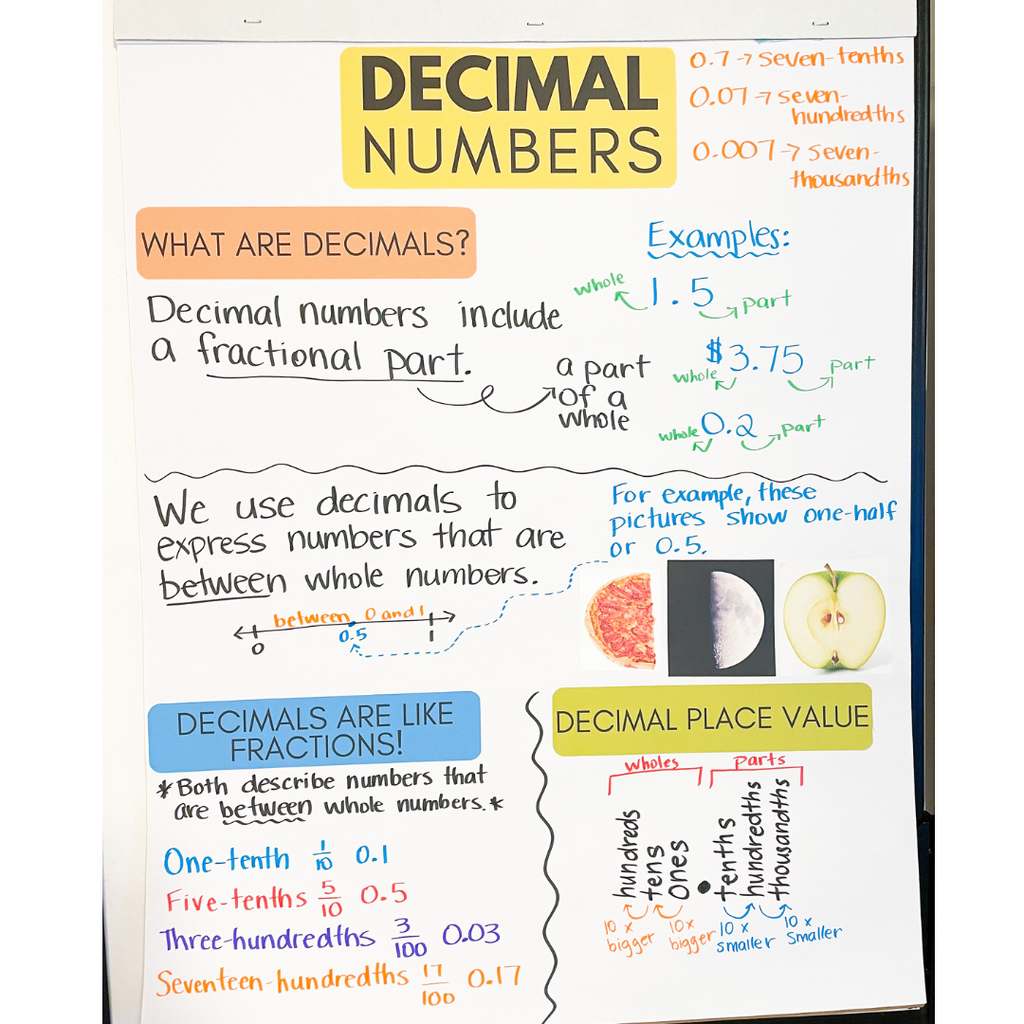 DECIMAL
NUMBERS
0.7 → seven-tenths
0.07 → seven-
hundredths
0.007 → seven-
thousandths
WHAT ARE DECIMALS?
Decimal numbers include
a fractional part.
a part
of a
whole
Examples:
whole 1.5 part
$3.75
whole part
whole 0.2 part
We use decimals to
express numbers that are
between whole numbers.
between 0 and 1
0.5
0 1
For example, these
pictures show one-half
or 0.5.
DECIMALS ARE LIKE
FRACTIONS!
*Both describe numbers that
are between whole numbers.*
One-tenth 1/10 0.1
Five-tenths 5/10 0.5
Three-hundredths 3/100 0.03
Seventeen-hundredths 17/100 0.17
DECIMAL PLACE VALUE
wholes parts
hundreds
tens
ones
.
tenths
hundredths
thousandths
10 x
bigger
10x
bigger
10 x
smaller
10 x
smaller